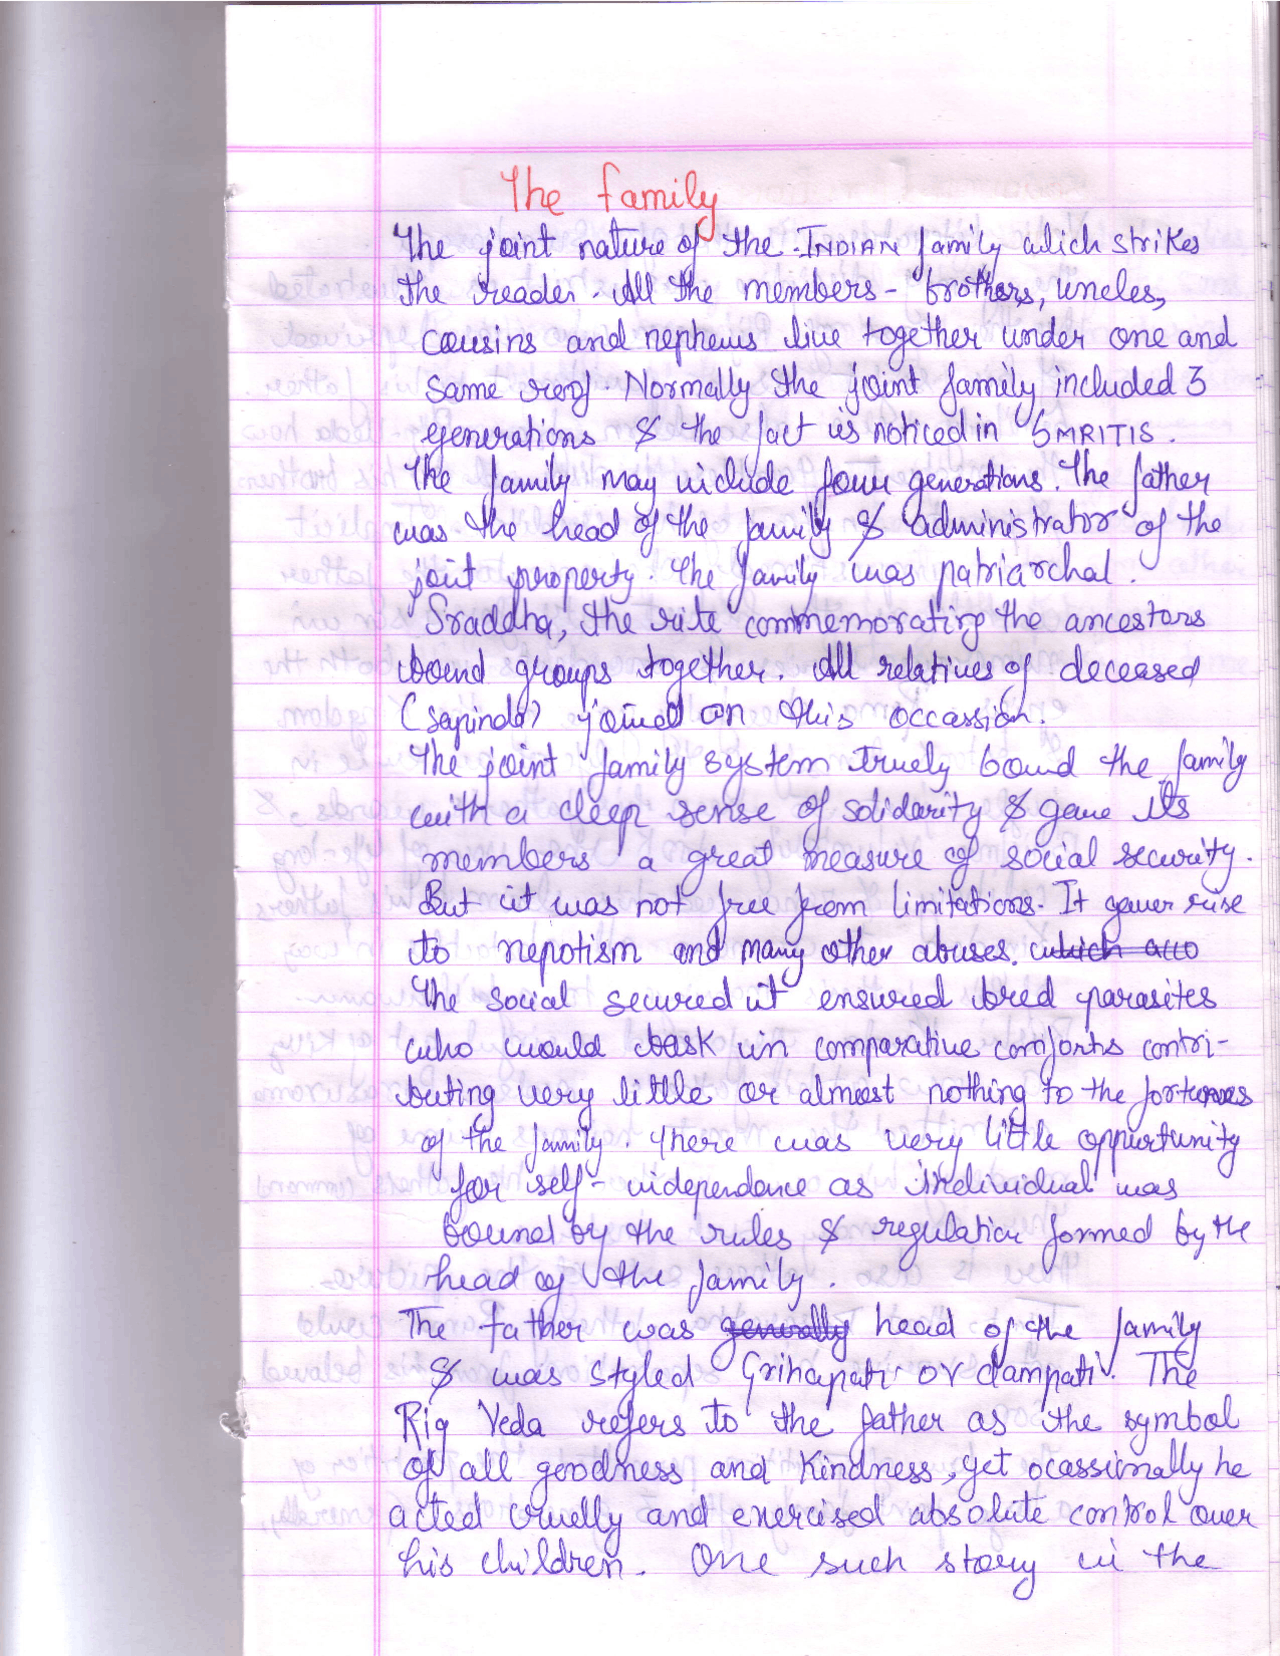 The family
The joint nature of the INDIAN family which strikes
the reader. All the members - brothers, uncles,
cousins and nephews live together under one and
same roof. Normally the joint family included 3
generations & the fact is noticed in SMRITIS.
The family may include four generations. The father
was the head of the family & administrator of the
joint property. The family was patriarchal.
Sraddha, the rite commemorating the ancestors
bound groups together. All relatives of deceased
(sapinda) joined on this occassion.
The joint family system truely bound the family
with a deep sense of solidarity & gave its
members a great measure of social security.
But it was not free from limitations. It gave rise
to nepotism and many other abuses. which also
The social secured it ensured bred parasites
who would bask in comparative comforts contri-
buting very little or almost nothing to the fortunes
of the family. There was very little oppurtunity
for self-independence as individual was
bound by the rules & regulation formed by the
head of the family.
The father was generally head of the family
& was styled Grihapati or dampati. The
Rig Veda refers to the father as the symbol
of all goodness and kindness, yet ocassionally he
acted cruelly and exercised absolute control over
his children. One such story in the